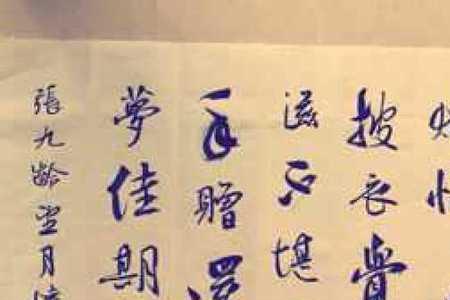 披衣覺
滋不堪
手贈還
夢佳期
張九齡望月